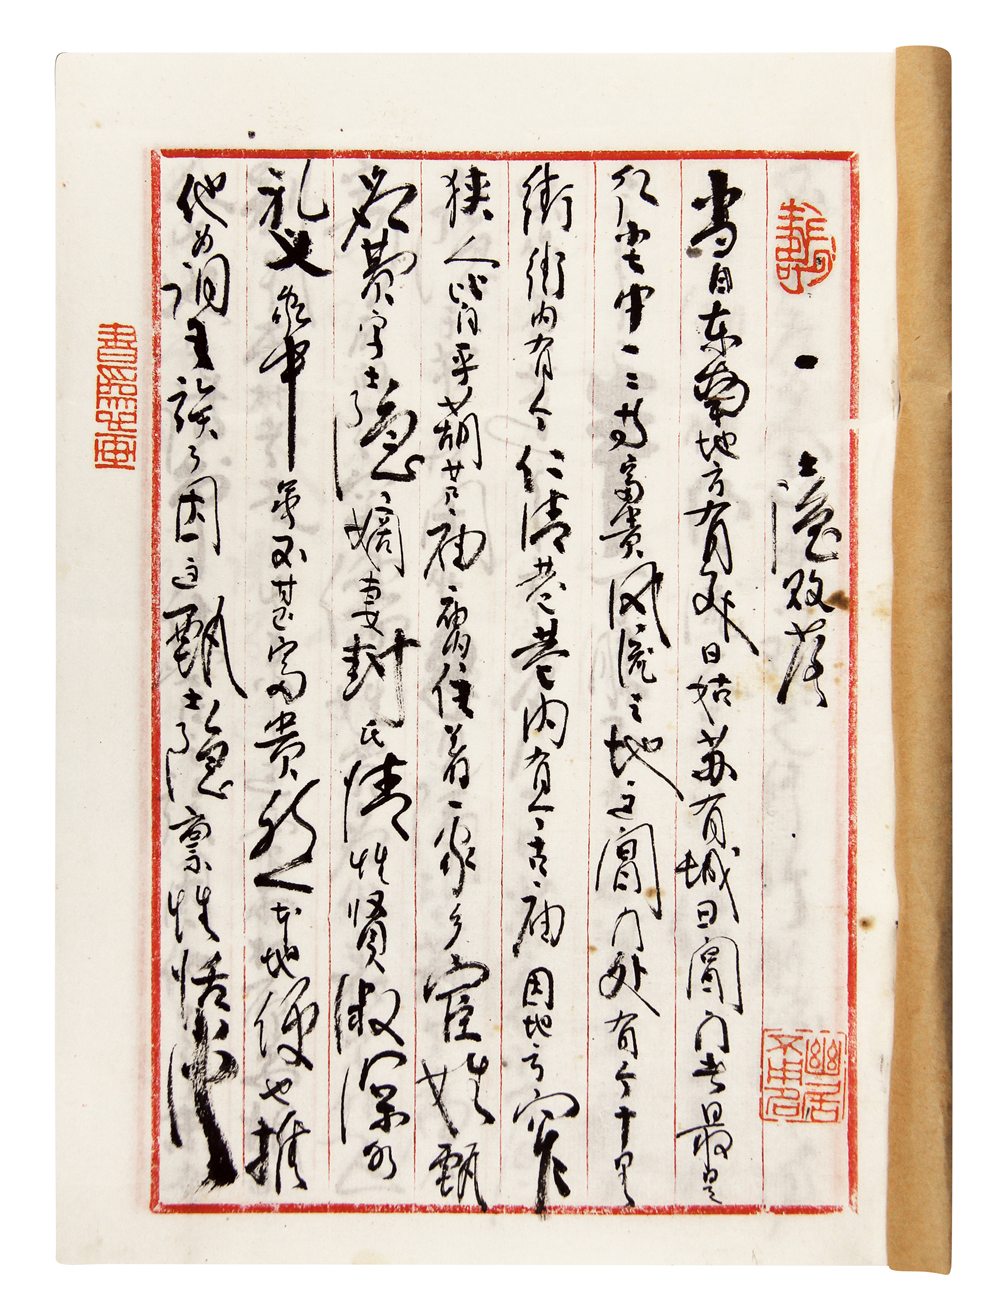 一 士隐败落
当自东南地方有处曰姑苏有城曰阊门者最是
红尘中一二等富贵风流之地这阊门外有个十里
街街内有个仁清巷巷内有个古庙因地方窄
狭人皆呼葫芦庙庙旁住着一家乡宦姓甄
名费字士隐嫡妻封氏情性贤淑深明
礼义家中虽不甚富贵然本地便也推
他为望族了因这甄士隐禀性恬淡
幽居